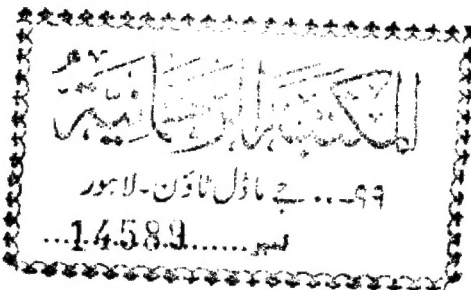 المكتبة الرحمانية
۹۹... جے ماڈل ٹاؤن - لاہور
نمبر ...14589......